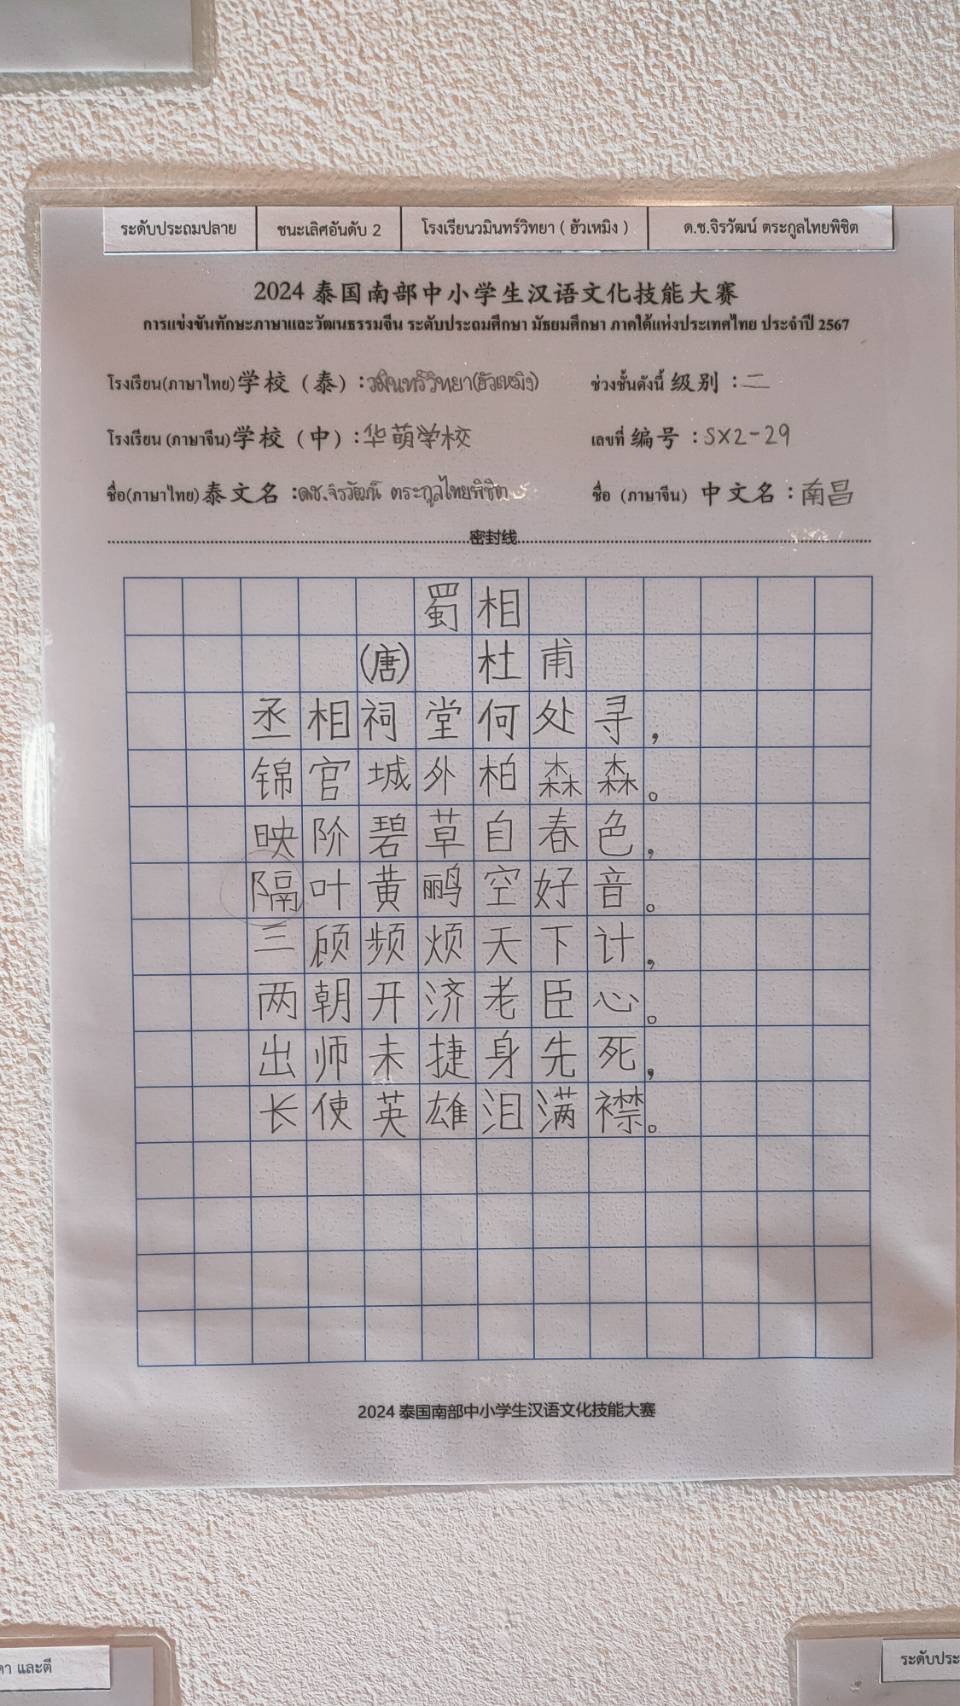 ระดับประถมปลาย ชนะเลิศอันดับ 2 โรงเรียนวมินทร์วิทยา ( ฮัวเหมิง ) ด.ช.จิรวัฒน์ ตระกูลไทยพิชิต
2024 泰国南部中小学生汉语文化技能大赛
การแข่งขันทักษะภาษาและวัฒนธรรมจีน ระดับประถมศึกษา มัธยมศึกษา ภาคใต้แห่งประเทศไทย ประจำปี 2567
โรงเรียน(ภาษาไทย)学校（泰）:วมินทร์วิทยา(ฮัวเหมิง) ช่วงชั้นดังนี้ 级别 :二
โรงเรียน (ภาษาจีน)学校（中）:华萌学校 เลขที่ 编号 :SX2-29
ชื่อ(ภาษาไทย)泰文名 :ด.ช.จิรวัฒน์ ตระกูลไทยพิชิต ชื่อ (ภาษาจีน) 中文名 :南昌
密封线
蜀相
(唐) 杜甫
丞相祠堂何处寻，
锦官城外柏森森。
映阶碧草自春色，
隔叶黄鹂空好音。
三顾频烦天下计，
两朝开济老臣心。
出师未捷身先死，
长使英雄泪满襟。
2024 泰国南部中小学生汉语文化技能大赛
ดา และตี
ระดับประ